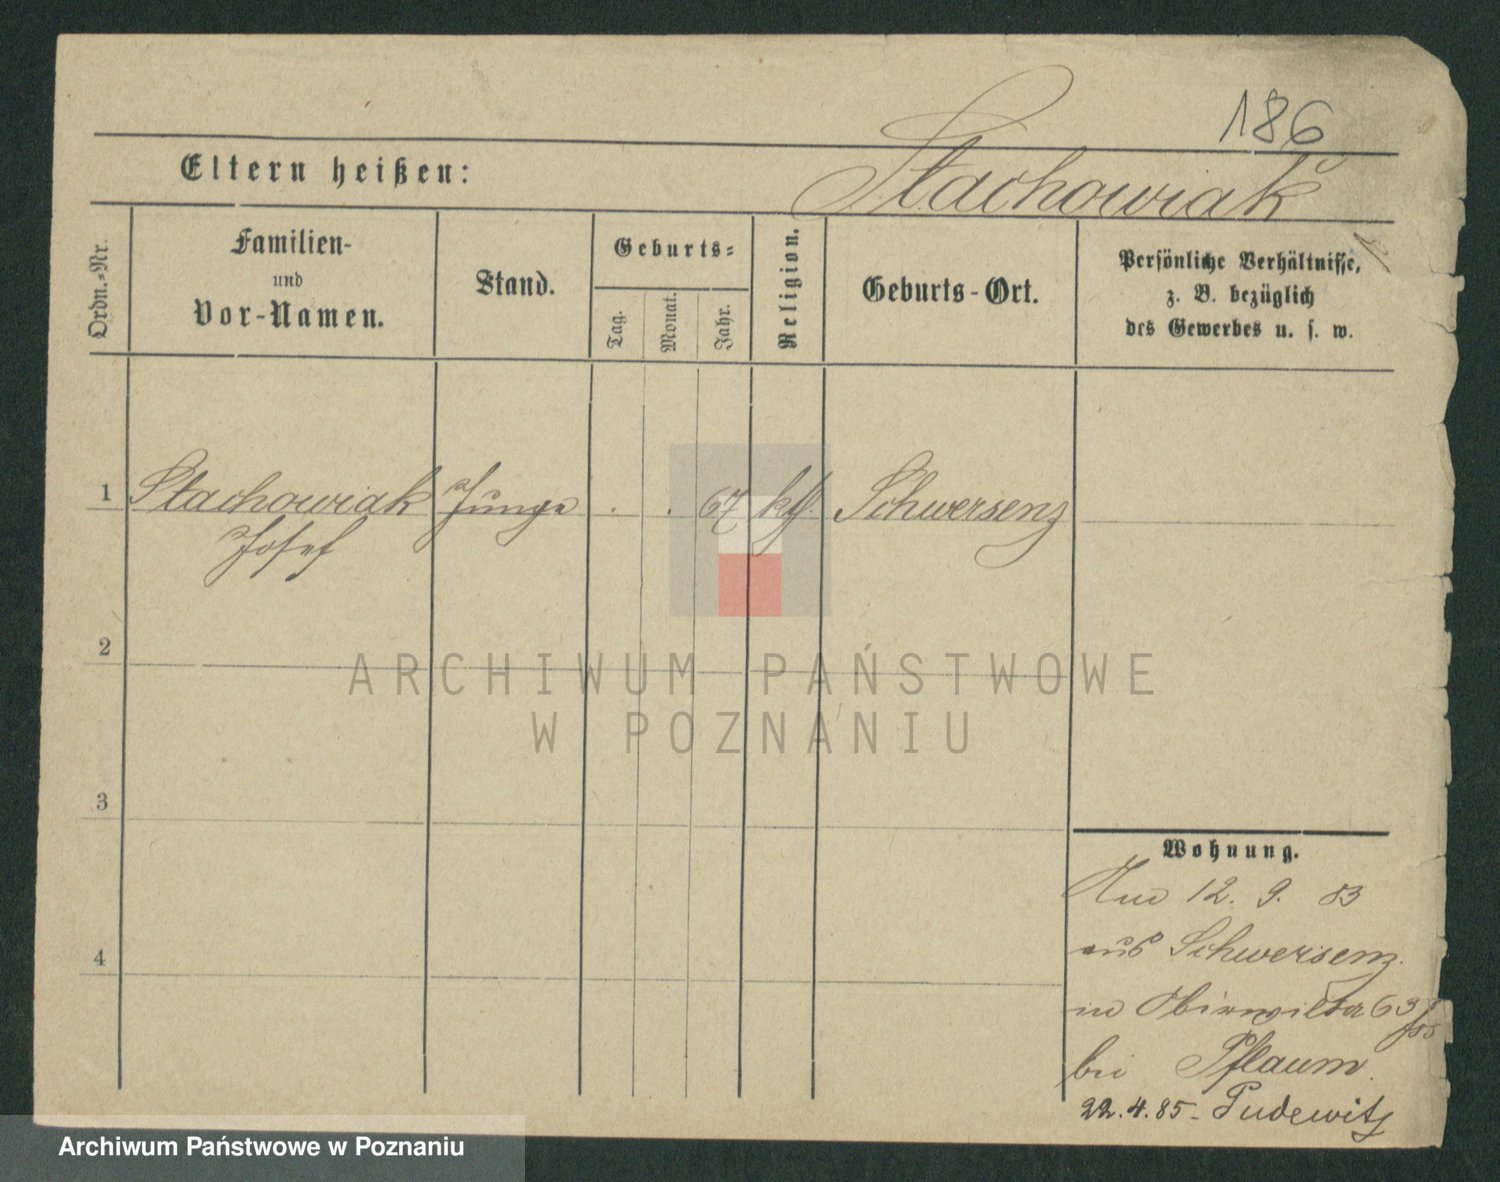 186
Eltern heißen:
Stachowiak
Ordn.-Nr.
Familien-
und
Vor-Namen.
Stand.
Geburts-
Tag.
Monat.
Jahr.
Religion.
Geburts-Ort.
Persönliche Verhältnisse,
z. B. bezüglich
des Gewerbes u. s. w.
1 Stachowiak Junge . . 67 kth. Schwersenz
Josef
2
ARCHIWUM PAŃSTWOWE
W POZNANIU
3
4
Wohnung.
12. 9. 83
aus Schwersenz.
in 63
bei Pflaum.
22.4.85- Pudewitz
Archiwum Państwowe w Poznaniu